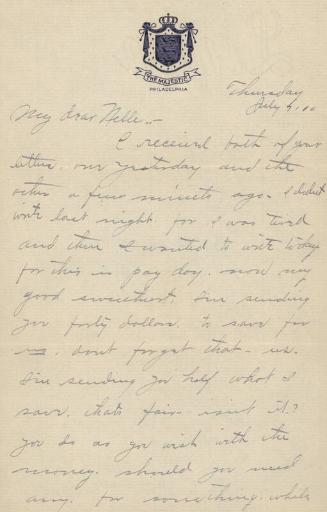 THE MAJESTIC
PHILADELPHIA
Thursday
July
My dear Nelle,-
I received both of your
letters. one yesterday and the
other a few minutes ago. I didnt
write last night for I was tired
and then I wanted to write today
for this is pay day. now my
good sweetheart, Im sending
you forty dollars. to save for
us. dont forget that - us.
Im sending you half what I
save. thats fair - isnt it?
you do as you wish with the
money. should you need
any for something. while